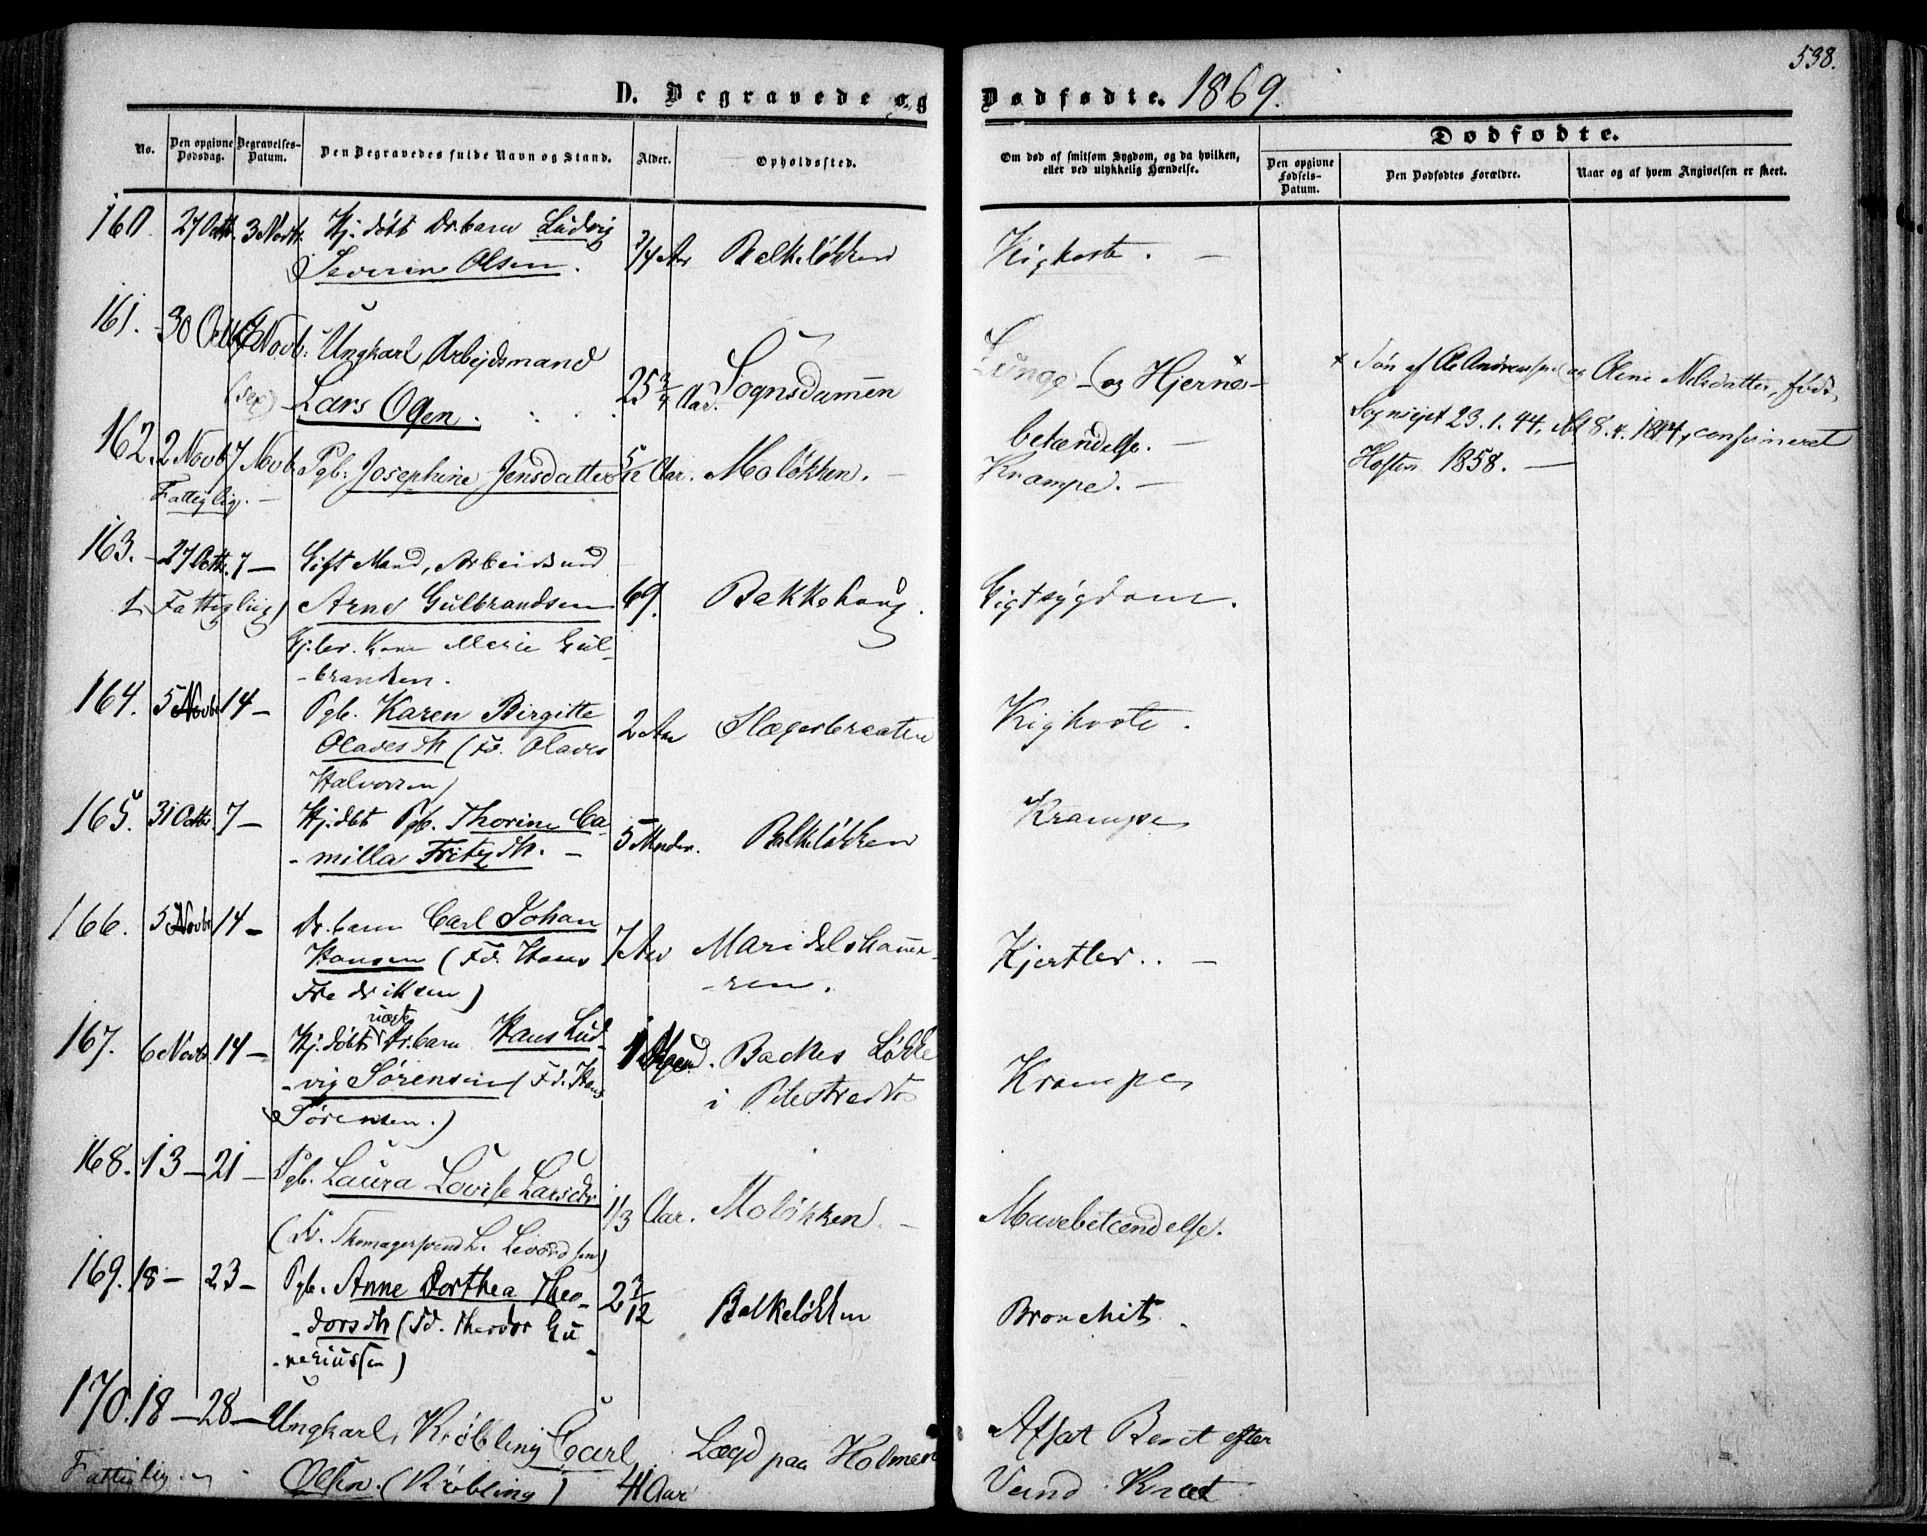 538.
D. Begravede og Dødfødte. 1869.
No.
Den opgivne Dødsdag.
Begravelses-Datum.
Den Begravedes fulde Navn og Stand.
Alder.
Opholdssted.
Om død af smitsom Sygdom, og da hvilken,
eller ved ulykkelig Hændelse.
Dødfødte.
Den opgivne Fødsels-Datum.
Den Dødfødtes Forældre.
Naar og af hvem Angivelsen er skeet.
160. 27 Octb. 3 Novbr. Hj. døbt Drbarn Ludvig
Severin Olsen. 3/4 Aar Balkeløkken Kighoste. —
161. 30 Octb. Novb. Ungkarl Arbejdsmand
Lars Olsen. 25 3/4 Aar. Sognsdammen Lunge- og Hjerne-
betændelse. —
× Søn af Ole Andreassen og Olene Nilsdatter, født
Sognsejet 23.1.44, dbt 8.4.1844, confirmeret
Høsten 1858. —
162. 2 Novb. 7 Novb. Pgb. Josephine Jensdatter 5/12 Aar. Moløkken. — Krampe. —
Fattiglig. —
163. — 27 Octb. 7 — Gift Mand, Arbeidsmd
(Fattiglig) Arne Gulbrandsen 69. Bakkehaug. Gigtsygdom.
Hj. lev. Kone Marie Gul-
-brandsen.
164. 5 Novbr 14 — Pgb. Karen Birgitte
Olavesdtr (Fd. Olaves
Halvorsen) 2 Aar Slagersbraaten Kighoste.
165. 31 Octbr. 7 — Hj. dbt Pgb. Thorine Ca-
-milla Fritzdtr. — 5 Mnder. Balkeløkken Krampe
166. 5 Novbr 14 — Dr.barn Carl Johan
Hansen (Fd. Hans
Fredriksen) 7 Aar Maridalshamme-
-ren. Kjertler. . —
167. 6 Novbr. 14 — Hj. døbt Dr.barn Hans Lud-
-vig Sørensen (Fd. Hans
Sørensen.) 1 Maaned. Backes Løkke
i Pilestrædet Krampe
168. 13 — 21 — Pgb. Laura Lovise Larsdtr
1/3 Aar. Moløkken. — Mavebetændelse.
169. 18 — 23 — Pgb. Anne Dorthea Theo-
-dorsdtr (Fd. Theodor Gu-
-neriussen) Balkeløkken Bronchit.
170. 18 — 28 — Ungkarl, Krøbling Carl
Fattiglig. Olsen. (Krøbling) 41 Aar Lægd paa Holmen
Afsat Benet efter